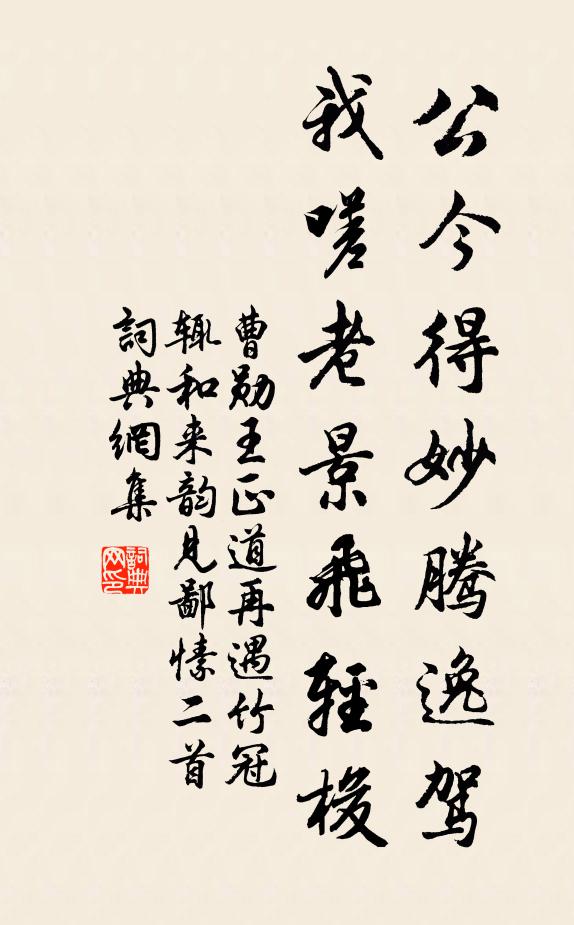 公今得妙腾逸驾
我嗟老景飛輕梭
曹勋王正道再遇竹冠
辄和来韵见鄙愫二首
詞典網集
詞典网印